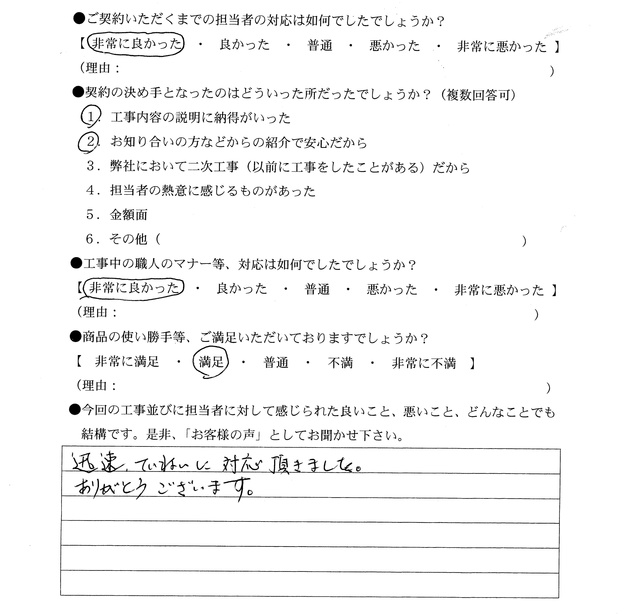 ●ご契約いただくまでの担当者の対応は如何でしたでしょうか？
【 非常に良かった ・ 良かった ・ 普通 ・ 悪かった ・ 非常に悪かった 】
（理由： ）
●契約の決め手となったのはどういった所だったでしょうか？（複数回答可）
1．工事内容の説明に納得がいった
2．お知り合いの方などからの紹介で安心だから
3．弊社において二次工事（以前に工事をしたことがある）だから
4．担当者の熱意に感じるものがあった
5．金額面
6．その他（ ）
●工事中の職人のマナー等、対応は如何でしたでしょうか？
【 非常に良かった ・ 良かった ・ 普通 ・ 悪かった ・ 非常に悪かった 】
（理由： ）
●商品の使い勝手等、ご満足いただいておりますでしょうか？
【 非常に満足 ・ 満足 ・ 普通 ・ 不満 ・ 非常に不満 】
（理由： ）
●今回の工事並びに担当者に対して感じられた良いこと、悪いこと、どんなことでも
結構です。是非、「お客様の声」としてお聞かせ下さい。
迅速、ていねいに対応頂きました。
ありがとうございます。